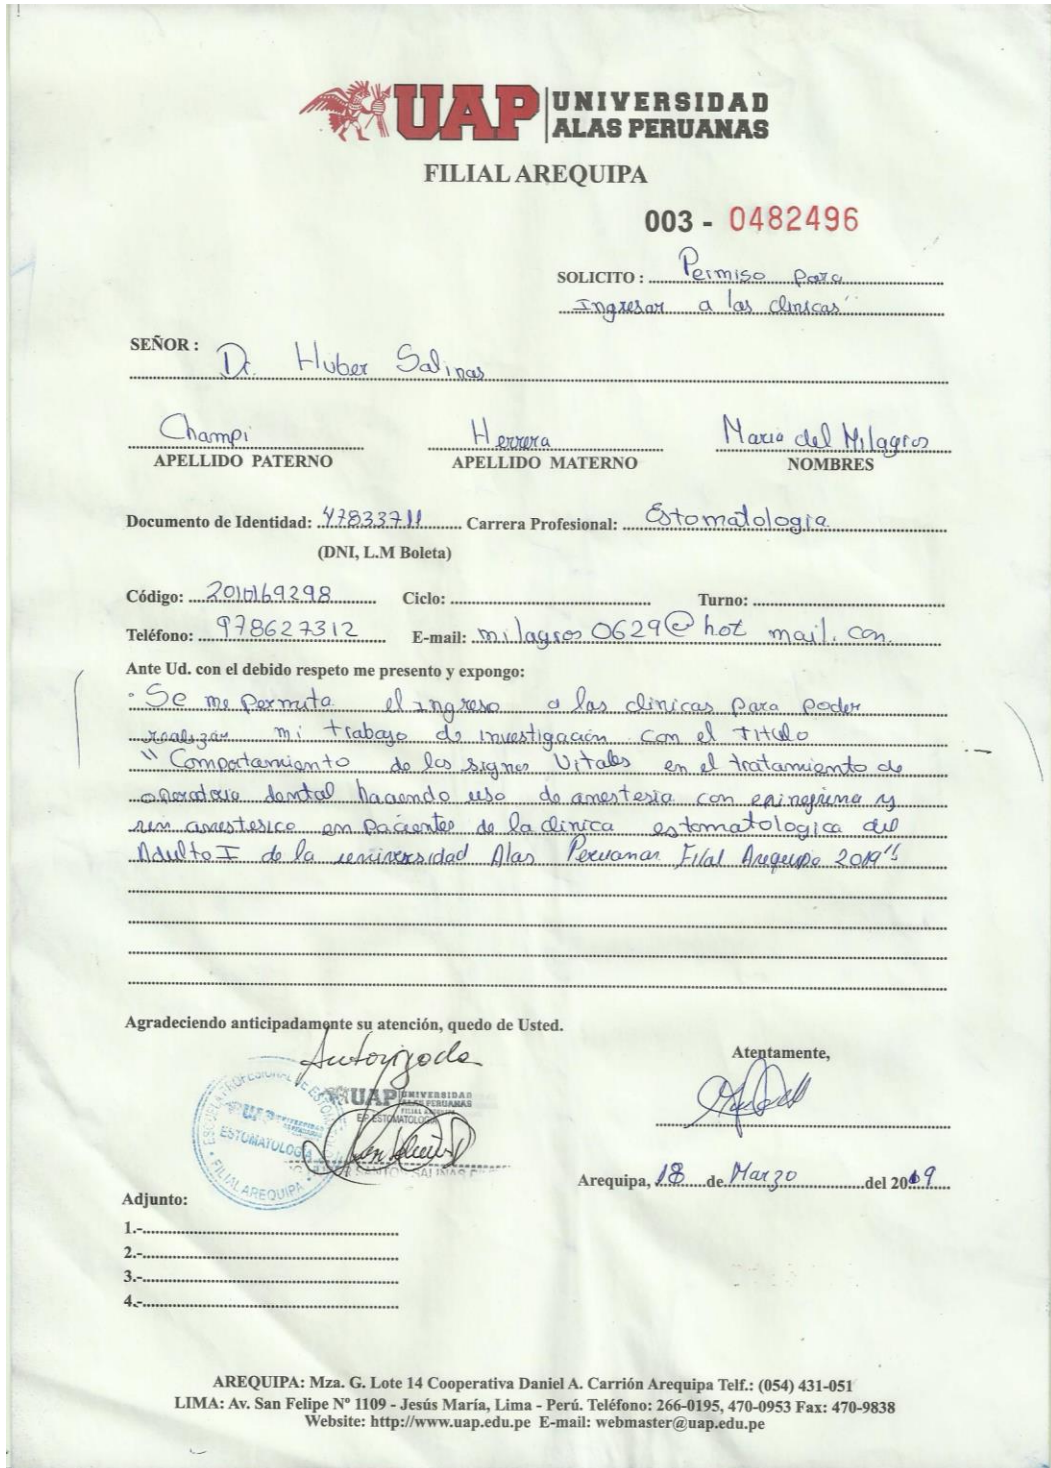 UAP UNIVERSIDAD
ALAS PERUANAS
FILIAL AREQUIPA
003 - 0482496
SOLICITO : Permiso para
Ingresar a las clinicas"
SEÑOR : Dr. Huber Salinas
Champi Herrera Maria del Milagros
APELLIDO PATERNO APELLIDO MATERNO NOMBRES
Documento de Identidad: 47833711 Carrera Profesional: Estomatologia
(DNI, L.M Boleta)
Código: 2010169298 Ciclo: Turno:
Teléfono: 978627312 E-mail: milagros0629@hot mail. con
Ante Ud. con el debido respeto me presento y expongo:
· Se me permita el ingreso a las clinicas para poder
realizar mi trabajo de investigación con el titulo
" Comportamiento de los signos Vitales en el tratamiento de
operatoria dental haciendo uso de anestesia con epinefrina y
sin anestesico en pacientes de la clinica estomatologica del
Adulto I de la universidad Alas Peruanas Filal Arequipa 2019"
Agradeciendo anticipadamente su atención, quedo de Usted.
Autorizado
Atentamente,
ESCUELA PROFESIONAL DE ESTOMATOLOGIA
UAP
ESTOMATOLOGIA
FILIAL AREQUIPA
UAP UNIVERSIDAD
ALAS PERUANAS
FILIAL AREQUIPA
EP ESTOMATOLOGIA
SANTOS SALINAS
Arequipa, 18 de Marzo del 2019
Adjunto:
1.-
2.-
3.-
4.-
AREQUIPA: Mza. G. Lote 14 Cooperativa Daniel A. Carrión Arequipa Telf.: (054) 431-051
LIMA: Av. San Felipe Nº 1109 - Jesús María, Lima - Perú. Teléfono: 266-0195, 470-0953 Fax: 470-9838
Website: http://www.uap.edu.pe E-mail: webmaster@uap.edu.pe